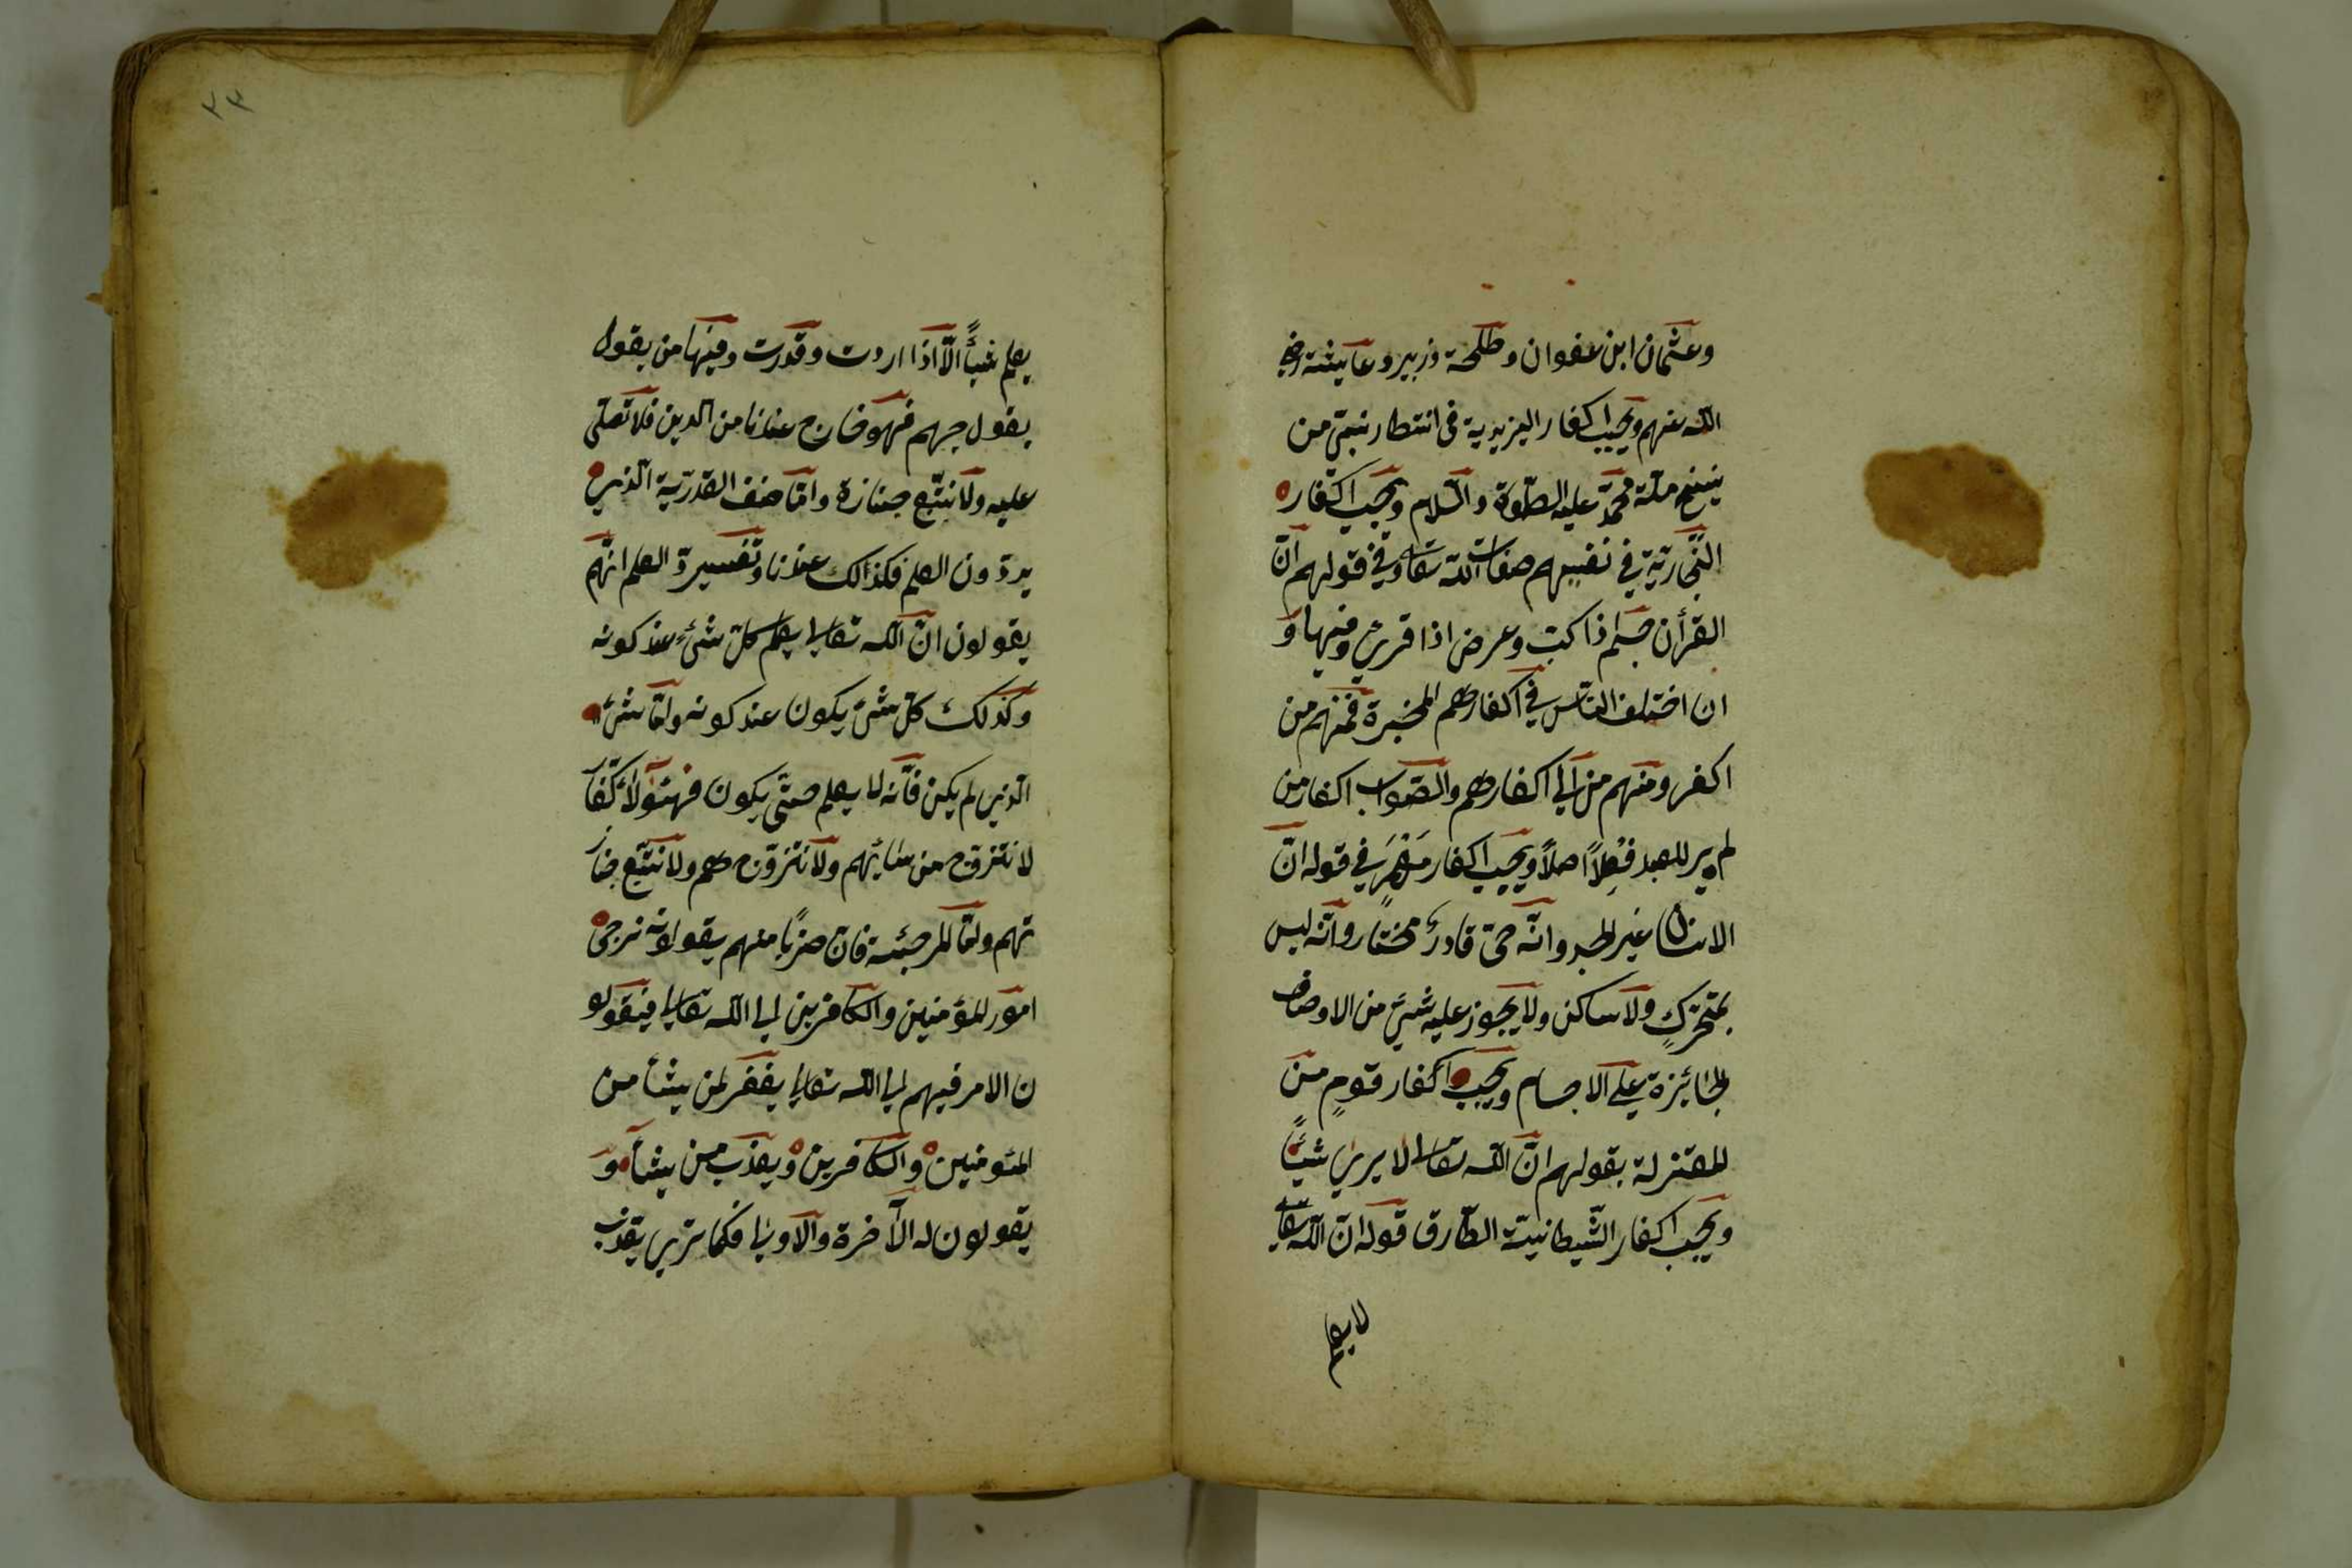 وعثمان ابن عفوان وطلحة وزبير وعايشة رضي
الله عنهم ويجيب اكفار اليزيدية في انتظار نبتي من
ينسخ ملة محمد عليه الصلوة والسلام ويجيب اكفار
النجارية في نفيهم صفات الله تعا وفي قولهم ان
القرأن جسم اذا كتب وعرض اذا قرئ وفيها و
ان اختلف الناس في اكفارهم المجبرة فمنهم من
اكفر ومنهم من ابي اكفارهم والصواب اكفار من
لم ير للعبد فعلاً اصلاً ويجيب اكفار معمر في قوله ان
الانسان غير الجسد وانه حي قادر مختار وانه ليس
بمتحرك ولا ساكن ولا يجوز عليه شئ من الاوصاف
الجائزة على الاجسام ويجيب اكفار قوم من
المعتزلة بقولهم ان الله تعالى لا يري شيئاً
ويجيب اكفار الشيطانية الطارق قوله ان الله تعالى
لا يعلم
٣٣
يعلم شيئاً الا اذا اردت وقدرت وفيها من يقول
يقول جهم فهو خارج عندنا من الدين فلا نصلي
عليه ولا نتبع جنازة واما صنف القدرية الذين
يردون العلم فكذالك عندنا وتفسير رد العلم انهم
يقولون ان الله تعالى يعلم كل شئ عند كونه
وكذلك كل شئ يكون عند كونه واما شئ
الذي لم يكن فانه لا يعلم حتي يكون فهئولاء كفار
لا نتزوج من نسائهم ولا نتزوج هم ولا نتبع جنا
تهم واما المرجئة فان ضرباً منهم يقولون نرجي
امور المؤمنين والكافرين الي الله تعالى فيقولو
ن الامر فيهم الي الله تعالى يغفر لمن يشأ من
المئومنين والكافرين ويعذب من يشأ و
يقولون له الآخرة والاولي فكما تري يعذب